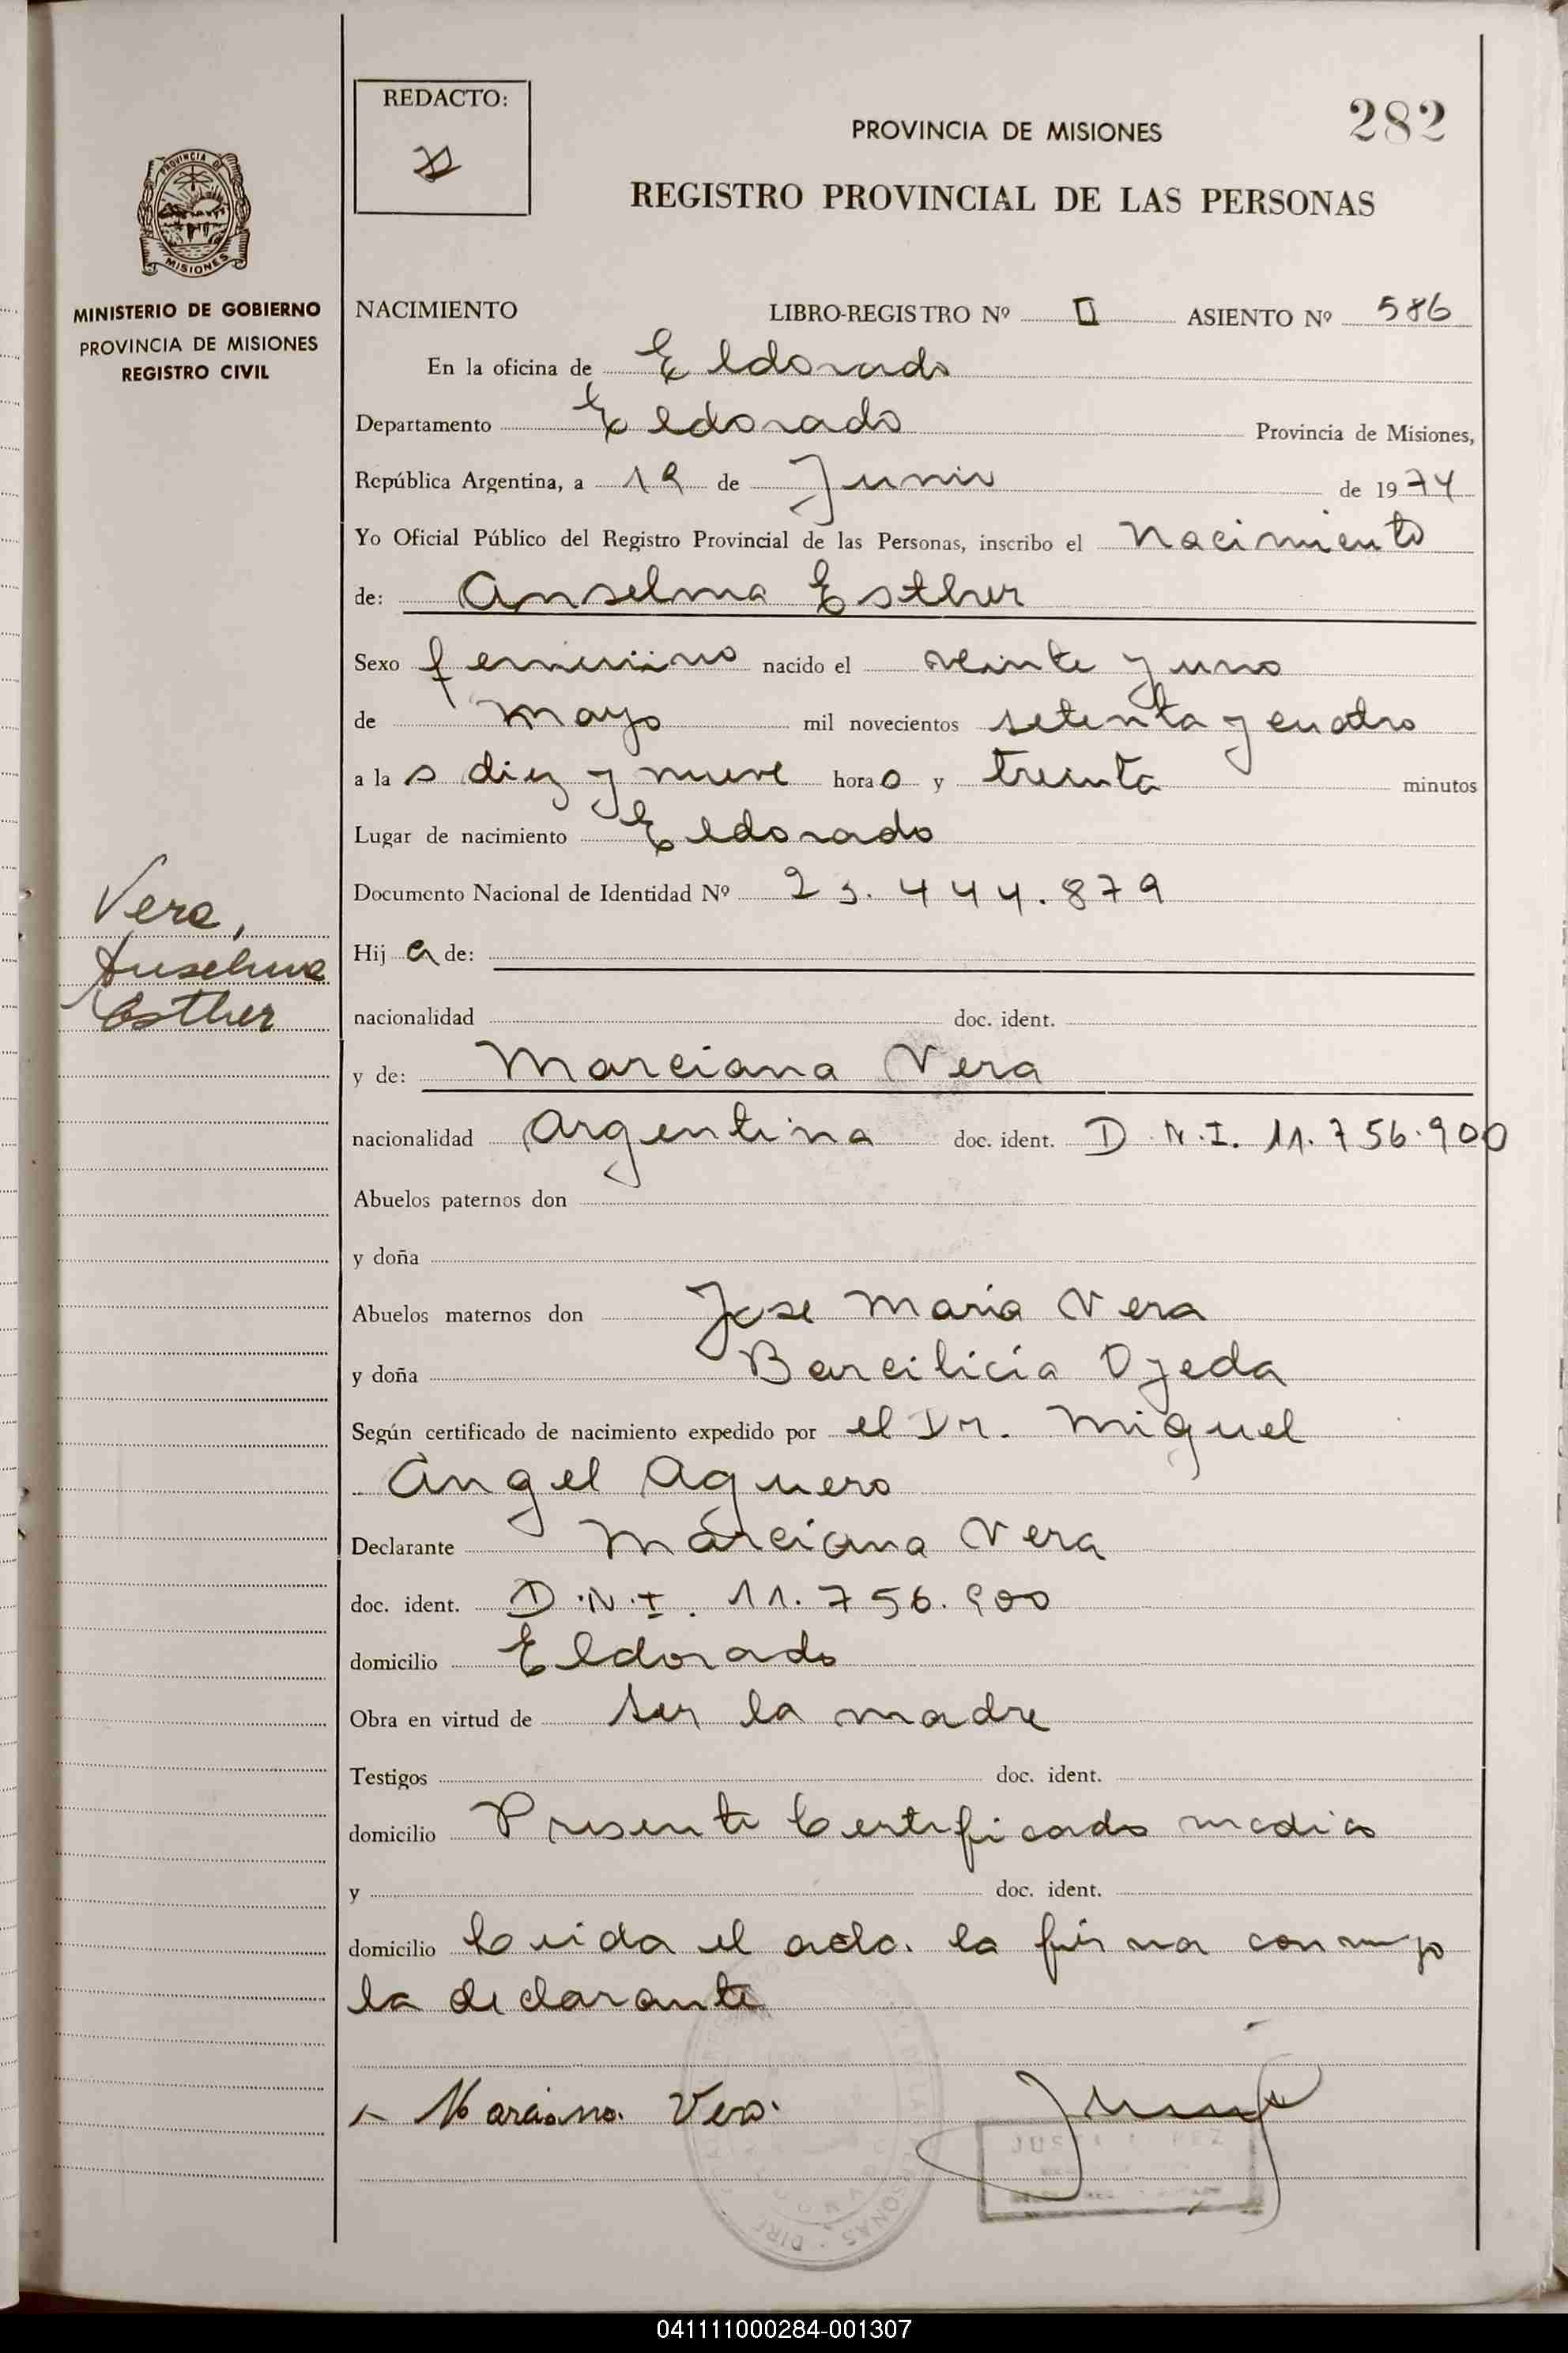 REDACTO:
282
PROVINCIA DE MISIONES
REGISTRO PROVINCIAL DE LAS PERSONAS
PROVINCIA DE
MISIONES
MINISTERIO DE GOBIERNO
PROVINCIA DE MISIONES
REGISTRO CIVIL
NACIMIENTO LIBRO-REGISTRO Nº II ASIENTO Nº 586
En la oficina de Eldorado
Departamento Eldorado Provincia de Misiones,
República Argentina, a 19 de Junio de 1974
Yo Oficial Público del Registro Provincial de las Personas, inscribo el Nacimiento
de: Anselma Esther
Sexo femenino nacido el veinte y uno
de Mayo mil novecientos setenta y cuatro
a las diez y nueve horas y treinta minutos
Lugar de nacimiento Eldorado
Documento Nacional de Identidad Nº 23.444.879
Vera,
Anselma
Esther
Hija de:
nacionalidad doc. ident.
y de: Marciana Vera
nacionalidad Argentina doc. ident. D.N.I. 11.756.900
Abuelos paternos don
y doña
Abuelos maternos don Jose Maria Vera
y doña Barcilicia Ojeda
Según certificado de nacimiento expedido por el Dr. Miguel
Angel Aguero
Declarante Marciana Vera
doc. ident. D.N.I. 11.756.900
domicilio Eldorado
Obra en virtud de ser la madre
Testigos doc. ident.
domicilio Presente Certificado medico
y doc. ident.
domicilio Leida el acta. la firma conmigo
la declarante
Marciana Vera
041111000284-001307